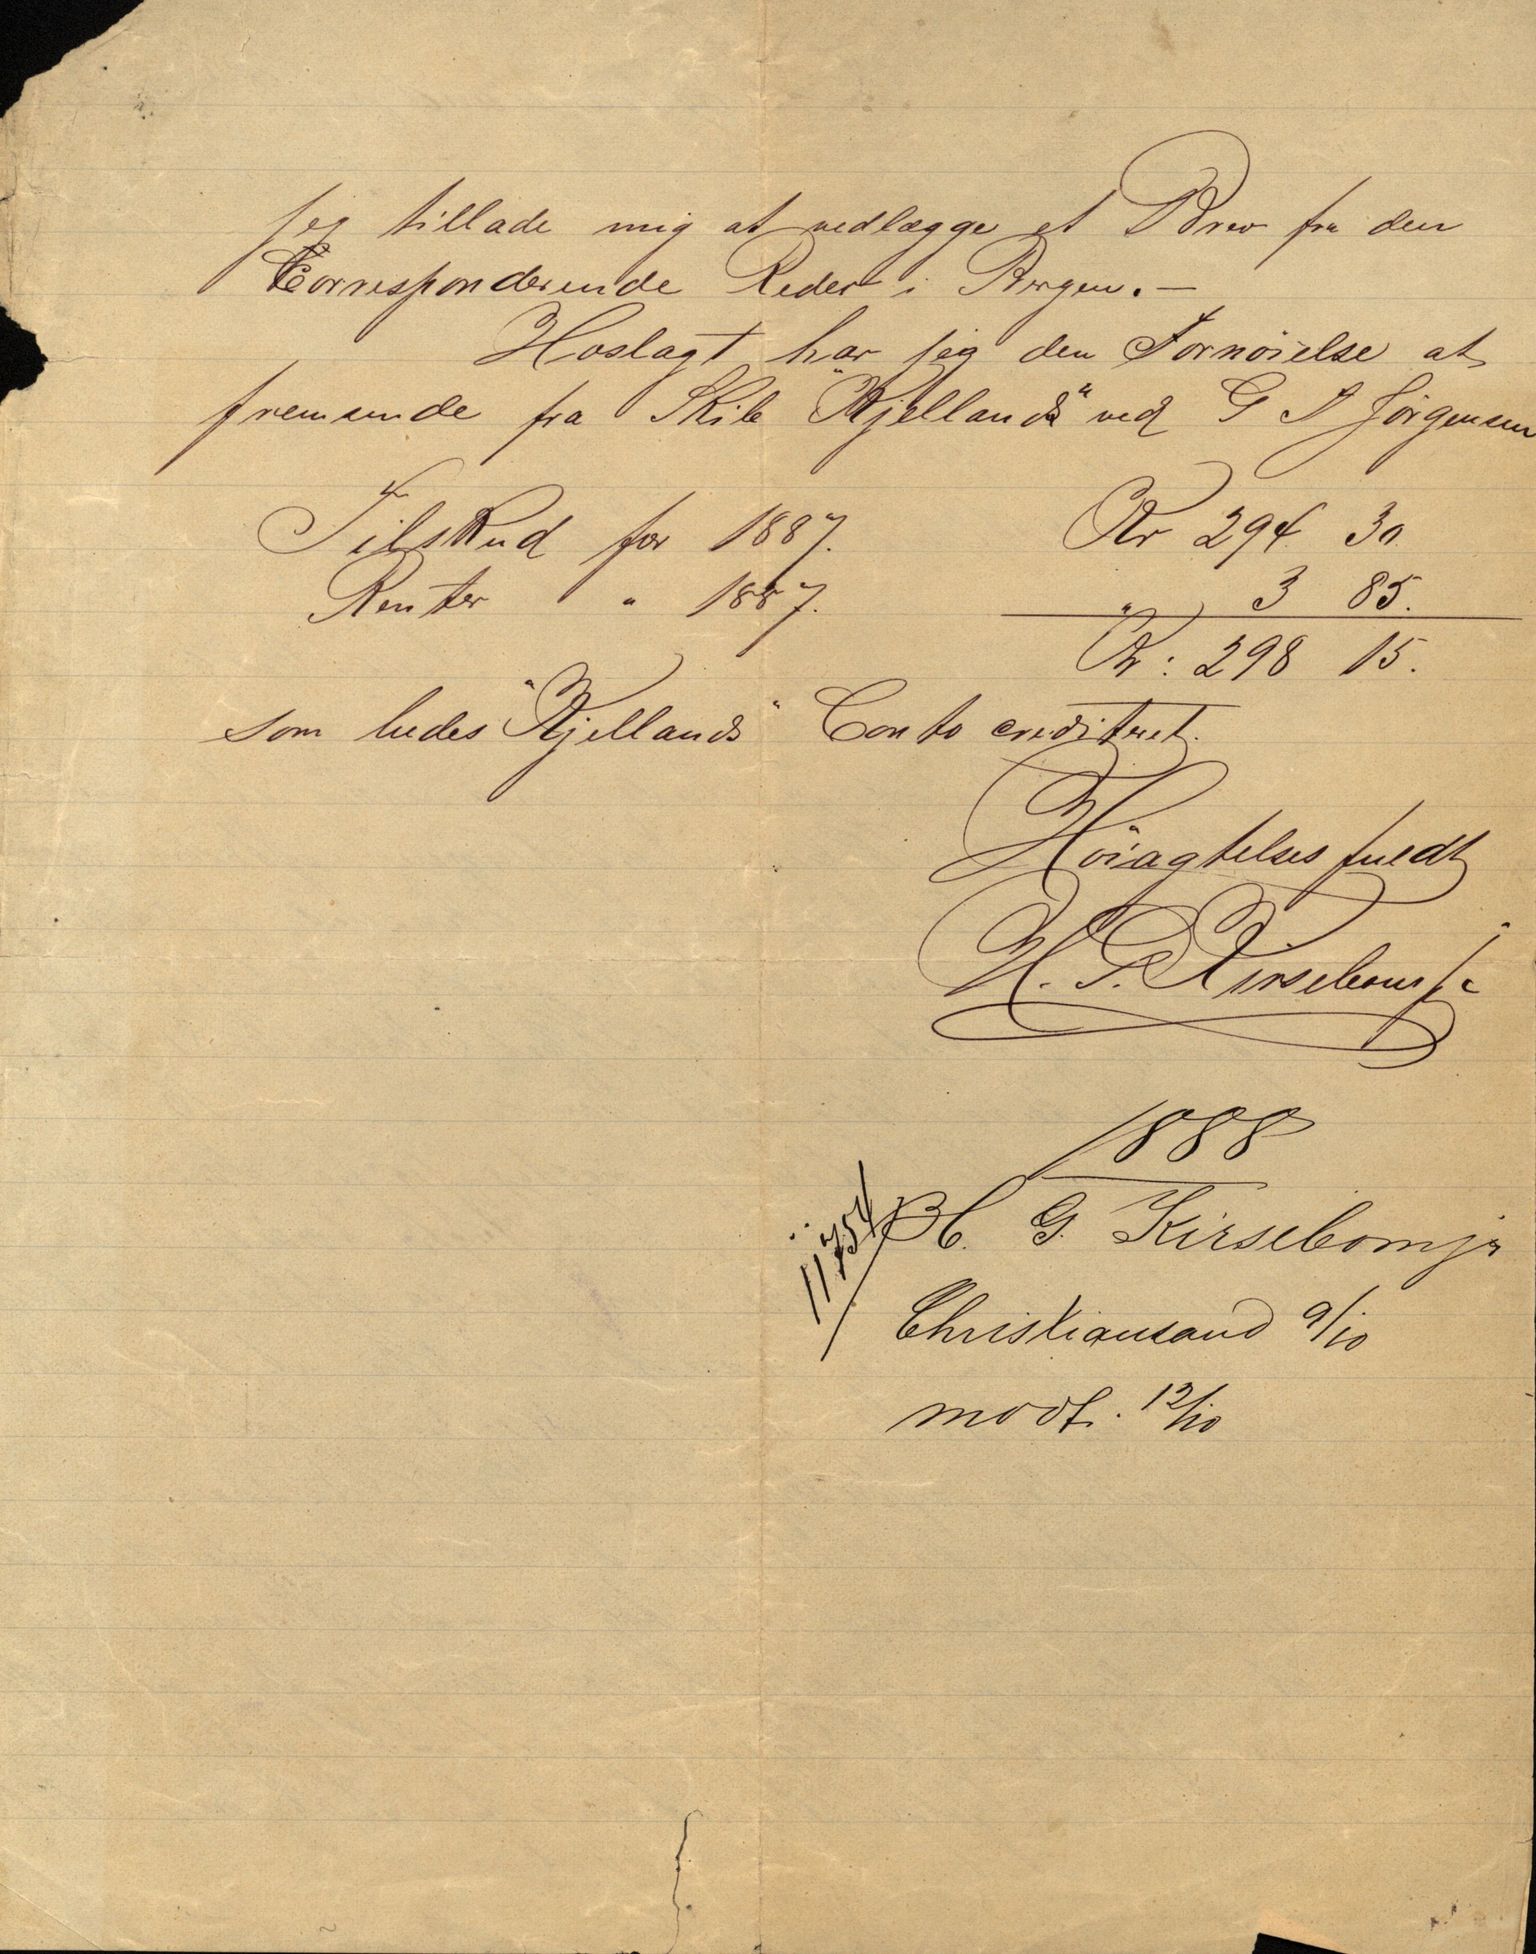 Jeg tillade mig at vedlægge et Brev fra den
Corresponderende Reder i Bergen. —
Hoslagt har jeg den Fornöielse at
fremsende fra Skib "Kjelland" ved G J Jörgensen
Tilskud for 1887. Kr 294 30
Renter " 1887. " 3 85.
Kr: 298 15.
som bedes "Kjellands" Conto creditert.
Höiagtelsesfuldt
H. G. Kirsebom jr
1888
11754
H. G. Kirsebom jr
Christiansand 9/10
modt. 12/10